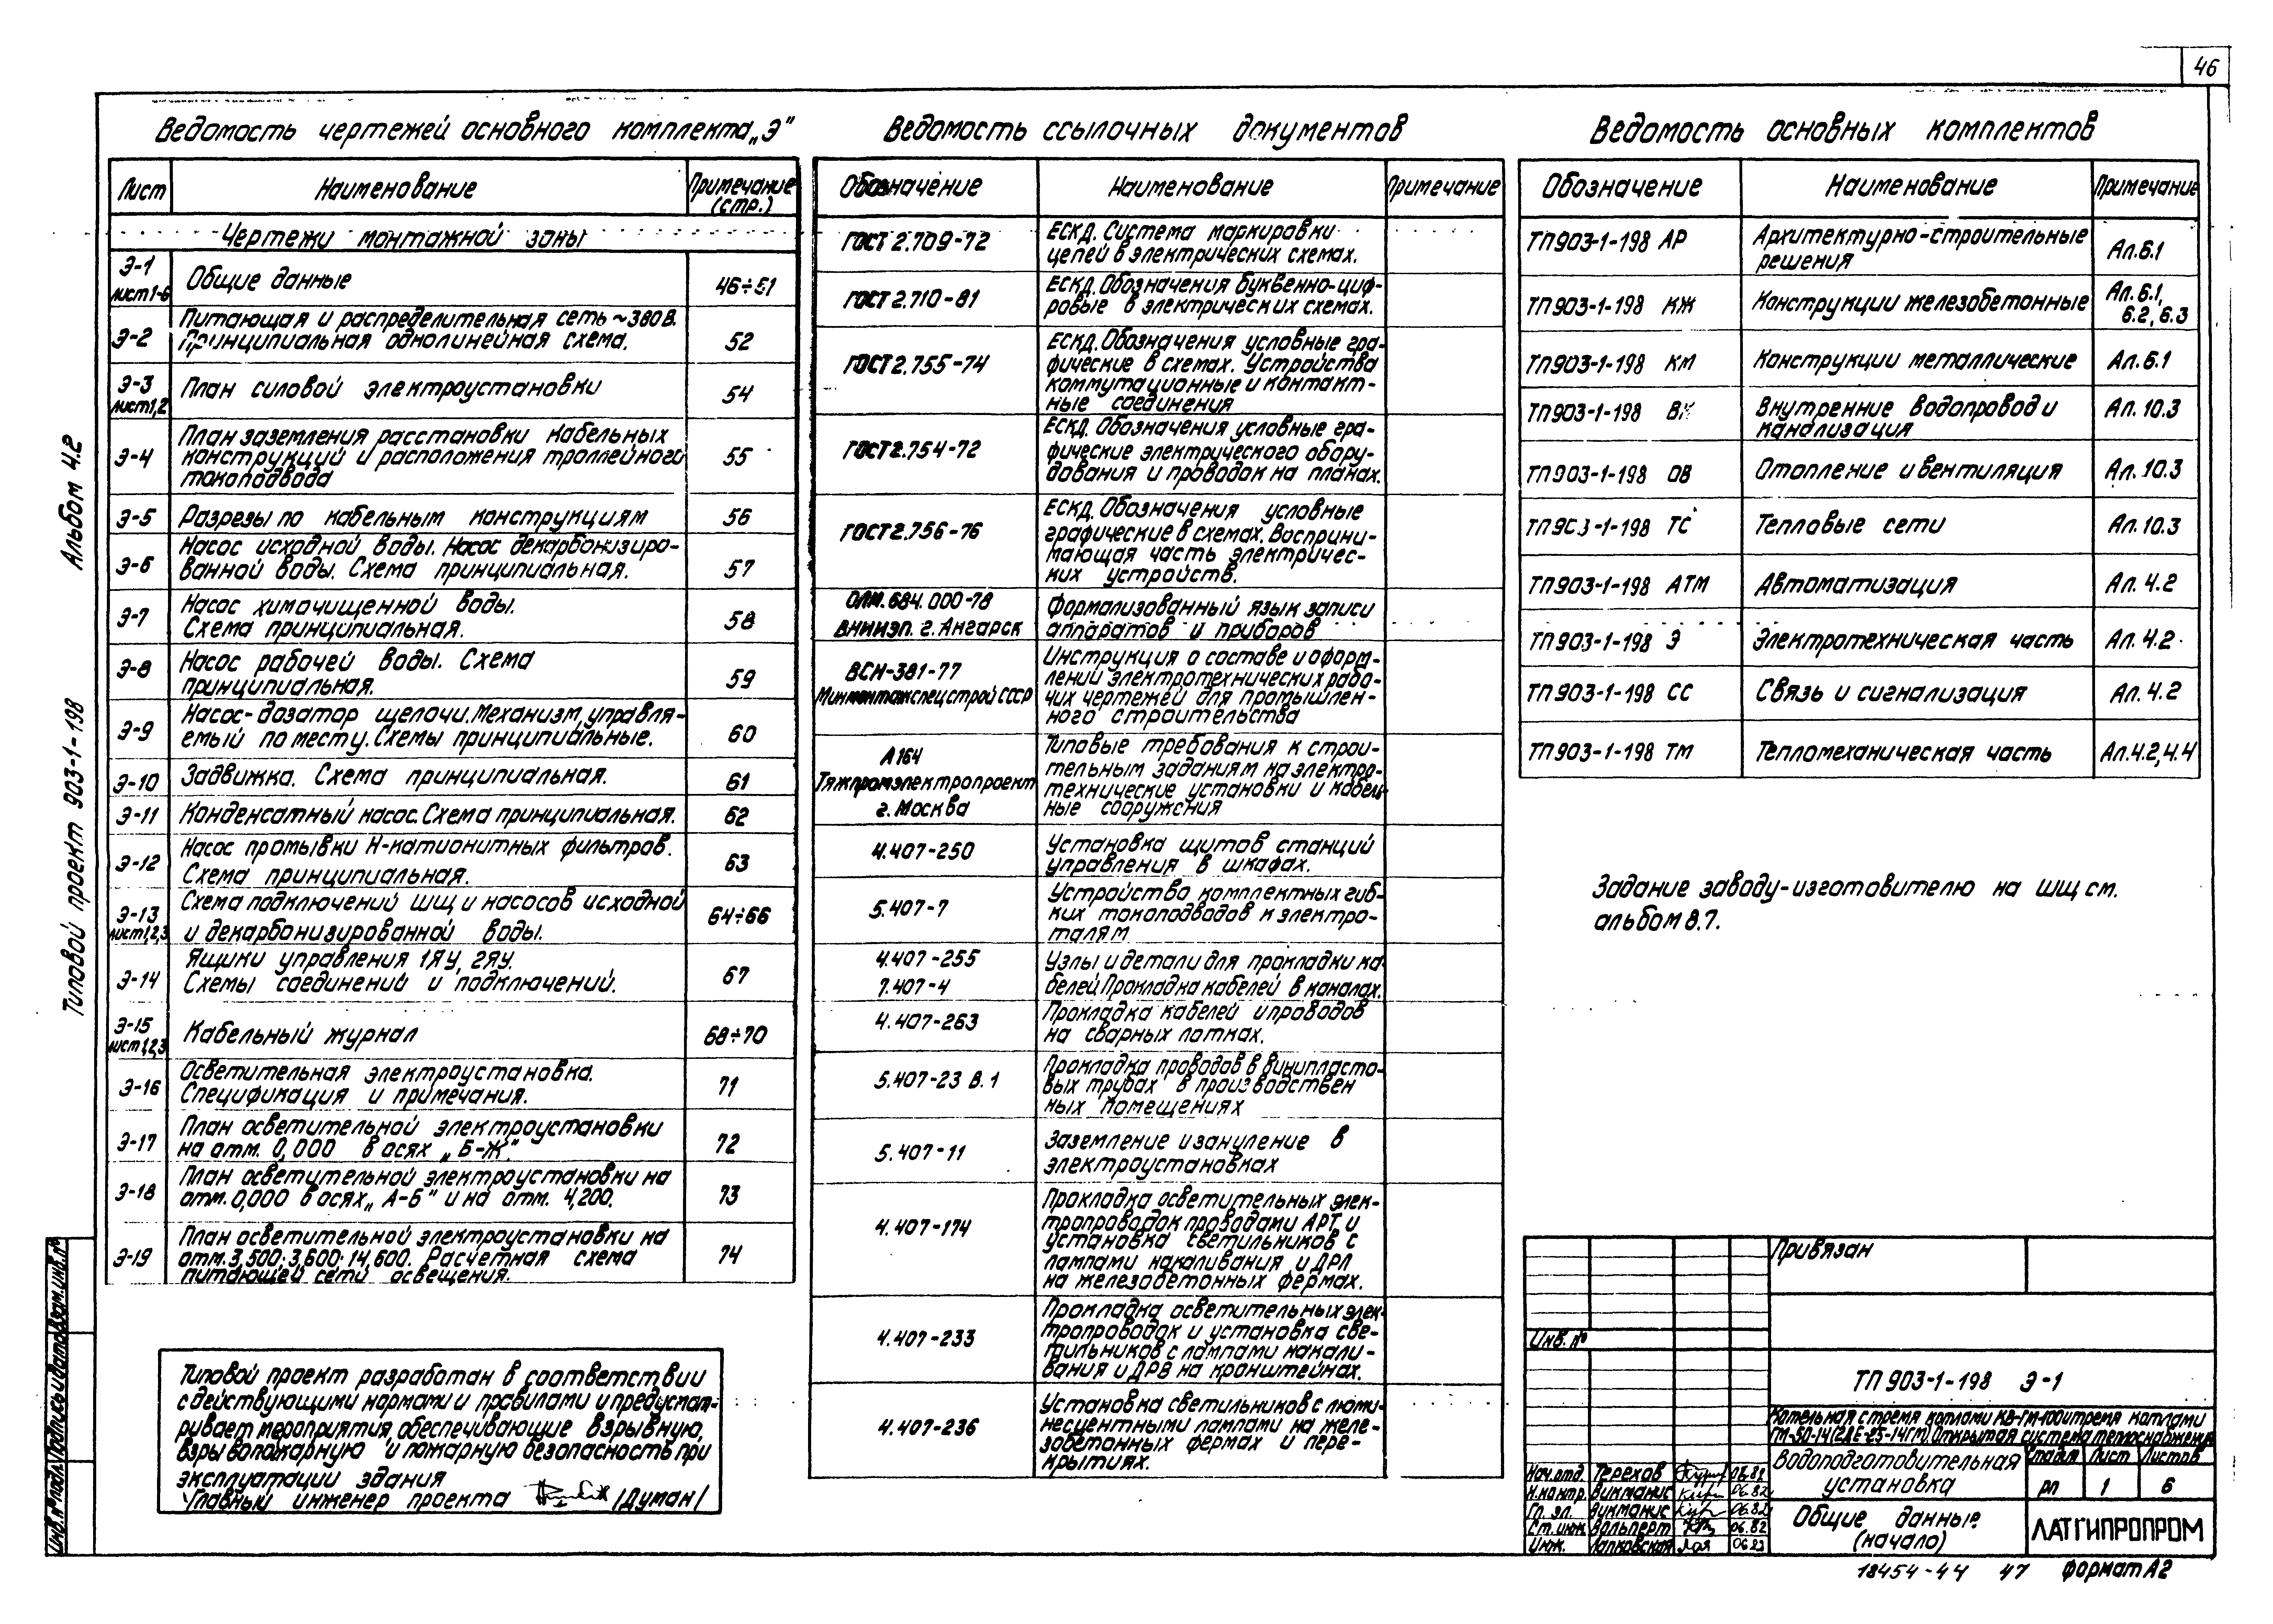 46
Ведомость чертежей основного комплекта „Э"
Лист Наименование Примечание (стр.)
Чертежи монтажной зоны
Э-1 лист 1-6 Общие данные 46÷51
Э-2 Питающая и распределительная сеть ~380 В.
Принципиальная однолинейная схема. 52
Э-3 лист 1,2 План силовой электроустановки 54
Э-4 План заземления расстановки кабельных
конструкций и расположения троллейного 55
токоподвода
Э-5 Разрезы по кабельным конструкциям 56
Э-6 Насос исходной воды. Насос декарбонизиро-
ванной воды. Схема принципиальная. 57
Э-7 Насос химочищенной воды.
Схема принципиальная. 58
Э-8 Насос рабочей воды. Схема
принципиальная. 59
Э-9 Насос-дозатор щелочи. Механизм, управля-
емый по месту. Схемы принципиальные. 60
Э-10 Задвижка. Схема принципиальная. 61
Э-11 Конденсатный насос. Схема принципиальная. 62
Э-12 Насос промывки Н-катионитных фильтров.
Схема принципиальная. 63
Э-13 лист 1,2,3 Схема подключений ШЩ и насосов исходной
и декарбонизированной воды. 64÷66
Э-14 Ящики управления 1ЯУ, 2ЯУ.
Схемы соединений и подключений. 67
Э-15 лист 1,2,3 Кабельный журнал 68÷70
Э-16 Осветительная электроустановка.
Спецификация и примечания. 71
Э-17 План осветительной электроустановки
на отм. 0,000 в осях „Б-Ж" 72
Э-18 План осветительной электроустановки на
отм. 0,000 в осях „А-Б" и на отм. 4,200. 73
Э-19 План осветительной электроустановки на
отм. 3,500; 3,600; 14,600. Расчетная схема 74
питающей сети освещения.
Типовой проект разработан в соответствии
с действующими нормами и правилами и предусмат-
ривает мероприятия, обеспечивающие взрывную,
взрывопожарную и пожарную безопасность при
эксплуатации здания
Главный инженер проекта /Думан/
Ведомость ссылочных документов
Обозначение Наименование Примечание
ГОСТ 2.709-72 ЕСКД. Система маркировки
цепей в электрических схемах.
ГОСТ 2.710-81 ЕСКД. Обозначения буквенно-циф-
ровые в электрических схемах.
ГОСТ 2.755-74 ЕСКД. Обозначения условные гра-
фические в схемах. Устройства
коммутационные и контакт-
ные соединения
ГОСТ 2.754-72 ЕСКД. Обозначения условные гра-
фические электрического обору-
дования и проводок на планах.
ГОСТ 2.756-76 ЕСКД. Обозначения условные
графические в схемах. Восприни-
мающая часть электричес-
ких устройств.
ОЛМ.684.000-78 Формализованный язык записи
ВНИИЭП. г. Ангарск аппаратов и приборов
ВСН-381-77 Инструкция о составе и оформ-
Минмонтажспецстрой СССР лении электротехнических рабо-
чих чертежей для промышлен-
ного строительства
А164 Типовые требования к строи-
Тяжпромэлектропроект тельным заданиям на электро-
г. Москва технические установки и кабель-
ные сооружения
4.407-250 Установка щитов станций
управления в шкафах.
5.407-7 Устройство комплектных гиб-
ких токоподводов к электро-
талям
4.407-255 Узлы и детали для прокладки ка-
7.407-4 белей. Прокладка кабелей в каналах.
4.407-263 Прокладка кабелей и проводов
на сварных лотках.
5.407-23 В.1 Прокладка проводов в винипласто-
вых трубах в производствен
ных помещениях
5.407-11 Заземление и зануление в
электроустановках
4.407-174 Прокладка осветительных элек-
тропроводок проводами АРТ и
установка светильников с
лампами накаливания и ДРЛ
на железобетонных фермах.
4.407-233 Прокладка осветительных элек-
тропроводок и установка све-
тильников с лампами накали-
вания и ДРВ на кронштейнах.
4.407-236 Установка светильников с люми-
несцентными лампами на желе-
зобетонных фермах и пере-
крытиях.
Ведомость основных комплектов
Обозначение Наименование Примечание
ТП 903-1-198 АР Архитектурно-строительные
решения Ал.6.1
ТП 903-1-198 КЖ Конструкции железобетонные Ал.6.1, 6.2, 6.3
ТП 903-1-198 КМ Конструкции металлические Ал.6.1
ТП 903-1-198 ВК Внутренние водопровод и
канализация Ал. 10.3
ТП 903-1-198 ОВ Отопление и вентиляция Ал. 10.3
ТП 903-1-198 ТС Тепловые сети Ал. 10.3
ТП 903-1-198 АТМ Автоматизация Ал. 4.2
ТП 903-1-198 Э Электротехническая часть Ал. 4.2
ТП 903-1-198 СС Связь и сигнализация Ал. 4.2
ТП 903-1-198 ТМ Тепломеханическая часть Ал.4.2, 4.4
Задание заводу-изготовителю на ШЩ см.
альбом 8.7.
Привязан
Инв. №
ТП 903-1-198 Э-1
Котельная с тремя котлами КВ-ГМ-100 и тремя котлами
ГМ-50-14 (2ДЕ-25-14ГМ). Открытая система теплоснабжения
Водоподготовительная
установка
Стадия Лист Листов
РП 1 6
Общие данные
(начало)
ЛАТГИПРОПРОМ
Нач. отд. Терехов 06.82
Н.контр. Викманис 06.82
Гл. эл. Викманис 06.82
Ст. инж. Вольперт 06.82
Инж. Лапковская 06.82
18454-44 47 Формат А2
Типовой проект 903-1-198 Альбом 4.2
Инв. № подл. Подпись и дата Взам. инв. №